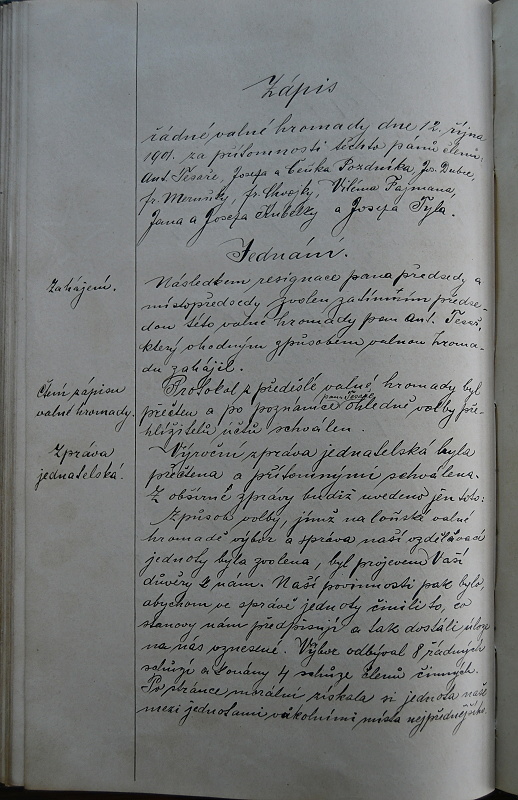 Zápis
řádné valné hromady dne 12. října
1901. za přítomnosti těchto pánů členů:
Ant. Tesaře, Josefa a Čeňka Pozdníka, Jos. Dubce,
fr. , fr. , Viléma Fajmana,
Jana a Josefa Kubelky a Josefa Tyla.
Jednání.
Zahájení.
Následkem resignace pana předsedy a
místopředsedy zvolen zatímním předse-
dou této valné hromady pan Ant. Tesař,
který vhodným způsobem valnou hroma-
du zahájil.
Čtení zápisu
valné hromady.
Protokol z předešlé valné hromady byl
přečten a po poznámce pana Tesaře ohledně volby pře-
hlížitelů účtů schválen.
Zpráva
jednatelská.
Výroční zpráva jednatelská byla
přečtena a přítomnými schválena.
Z obsírné zprávy budiž uvedeno jen toto:
Způsob volby, jímž na loňské valné
hromadě výbor a správa naší vzdělávací
jednoty byla zvolena, byl projevem Vaší
důvěry k nám. Naší povinností pak bylo,
abychom ve správě jednoty činili to, co
stanovy nám předpisují a tak dostáli úloze
na nás vznesené. Výbor odbýval 8 řádných
schůzí a konány 4 schůze členů činných.
Po stránce morální získala si jednota naše
mezi jednotami vůkolními místa nejpřednější.